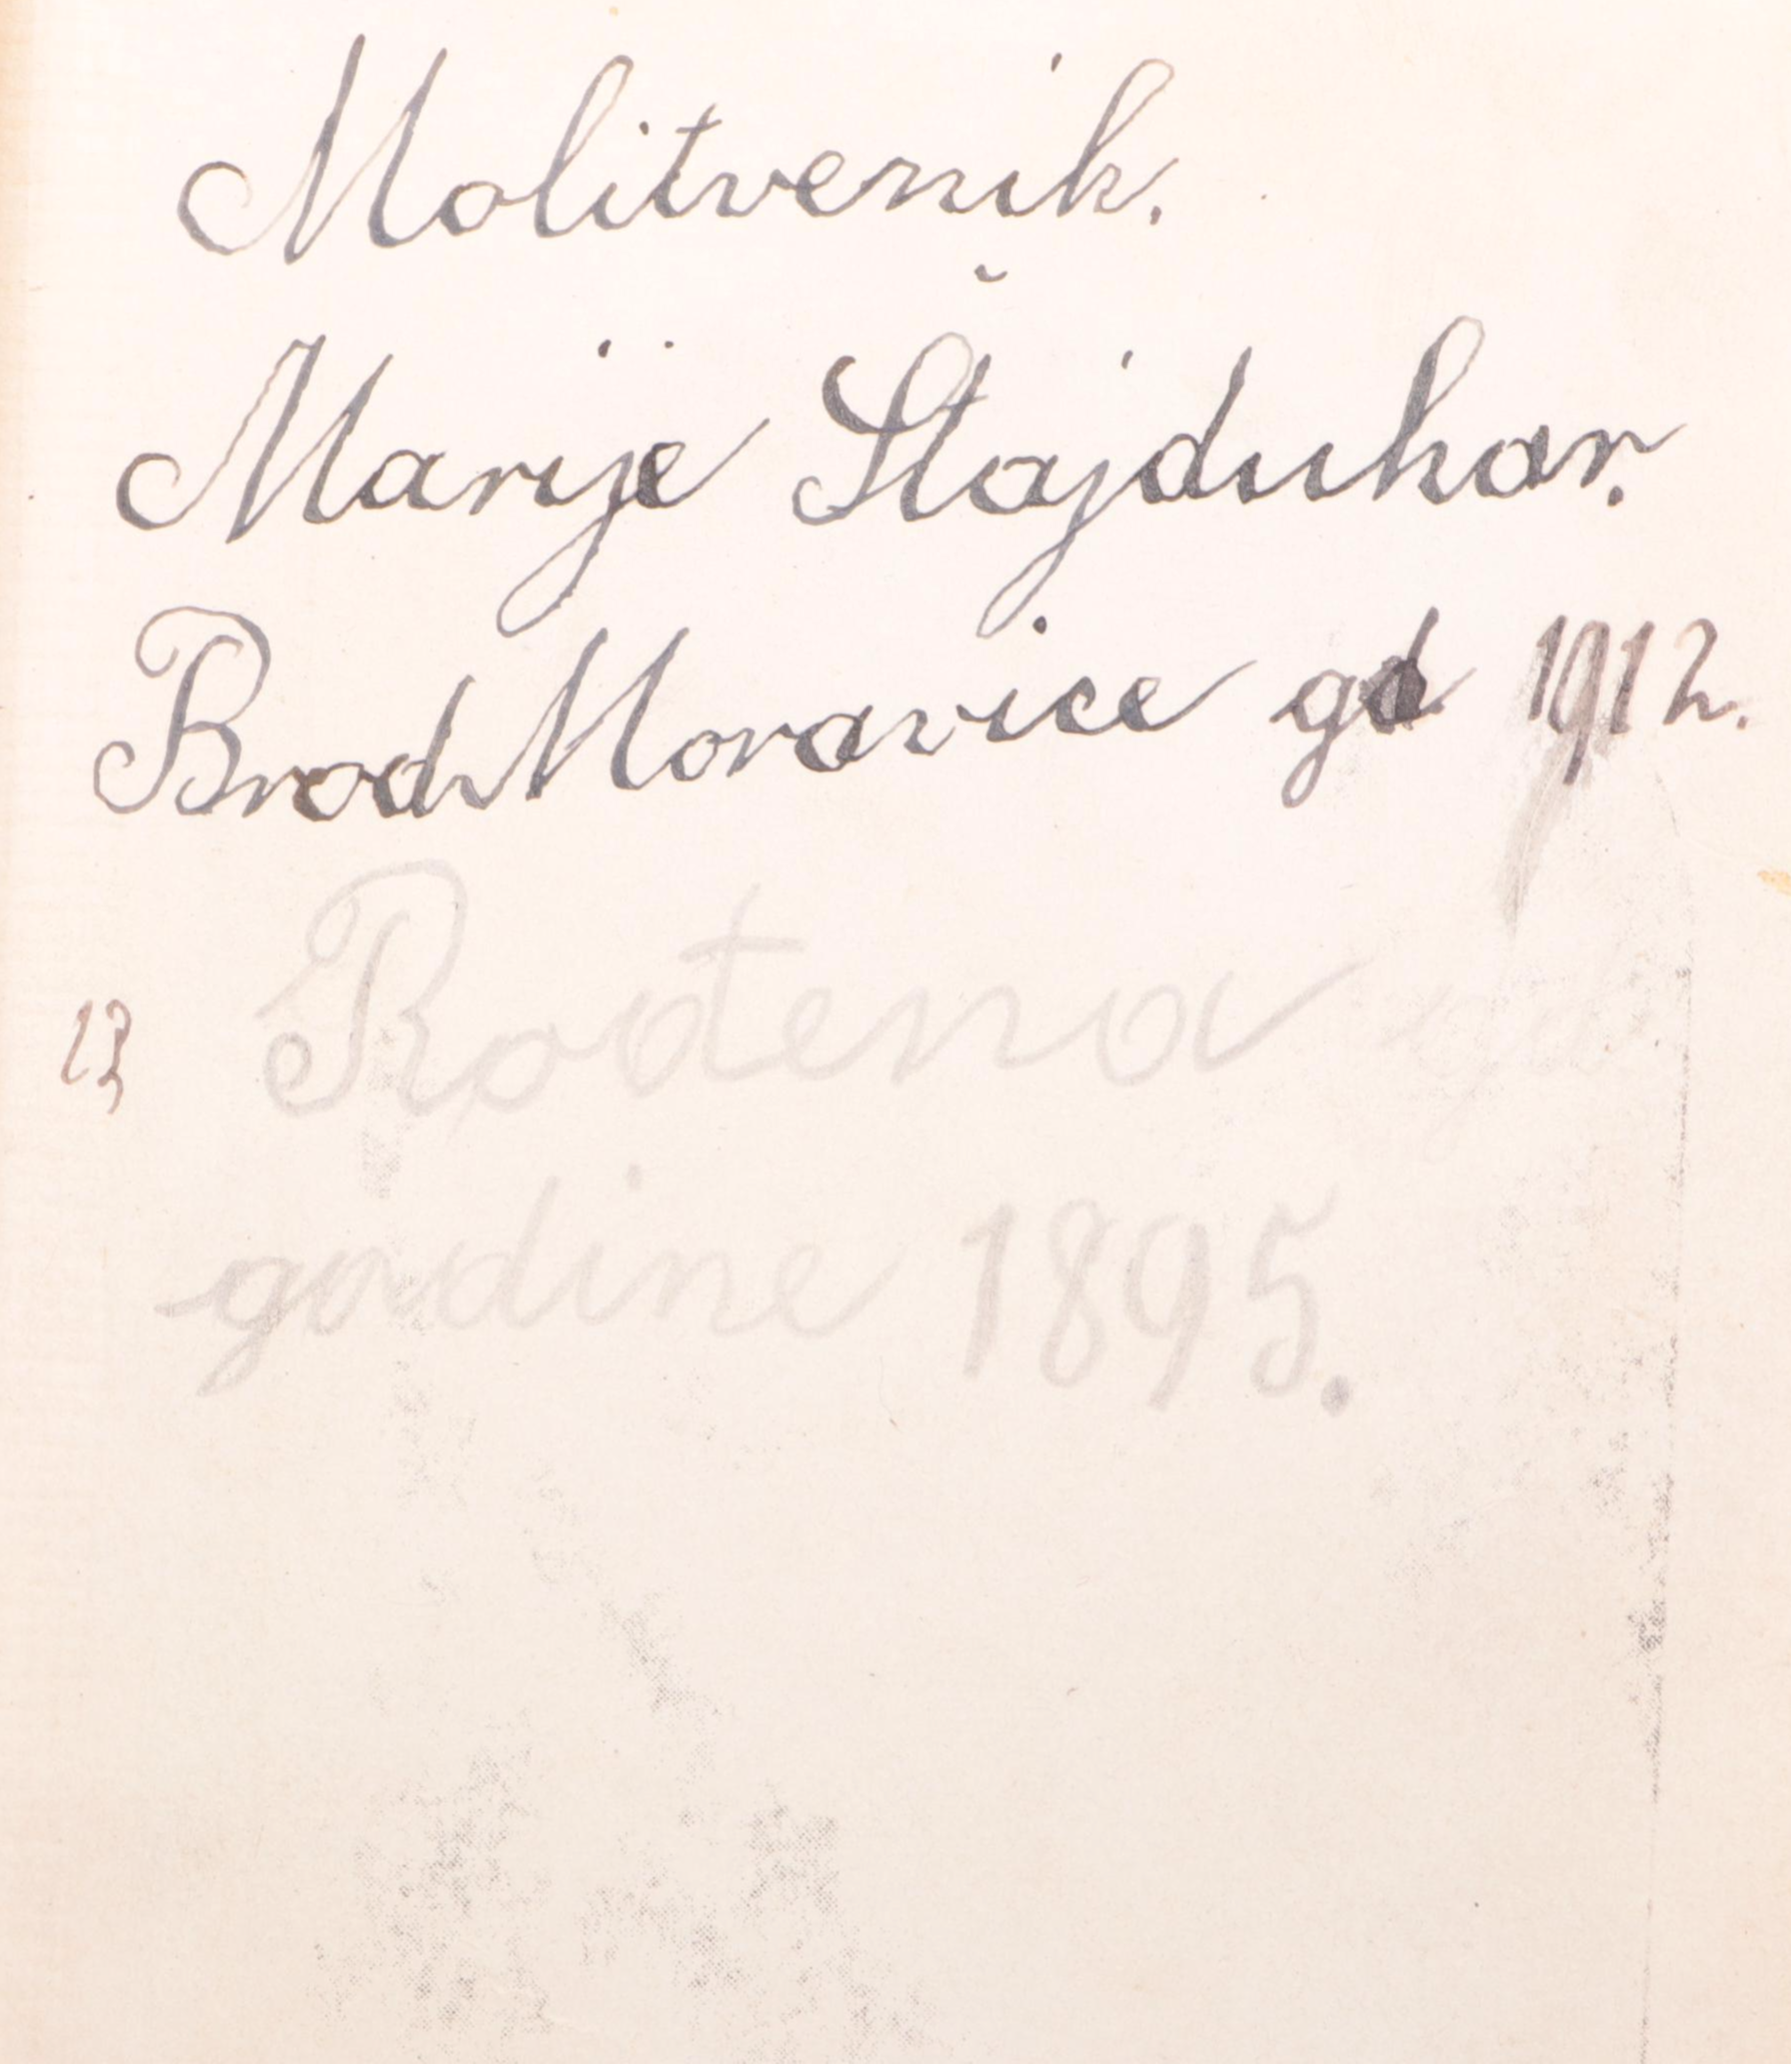 Molitvenik.
Marije Štajduhar.
Brod Moravice gd 1912.
Rođena
godine 1895.